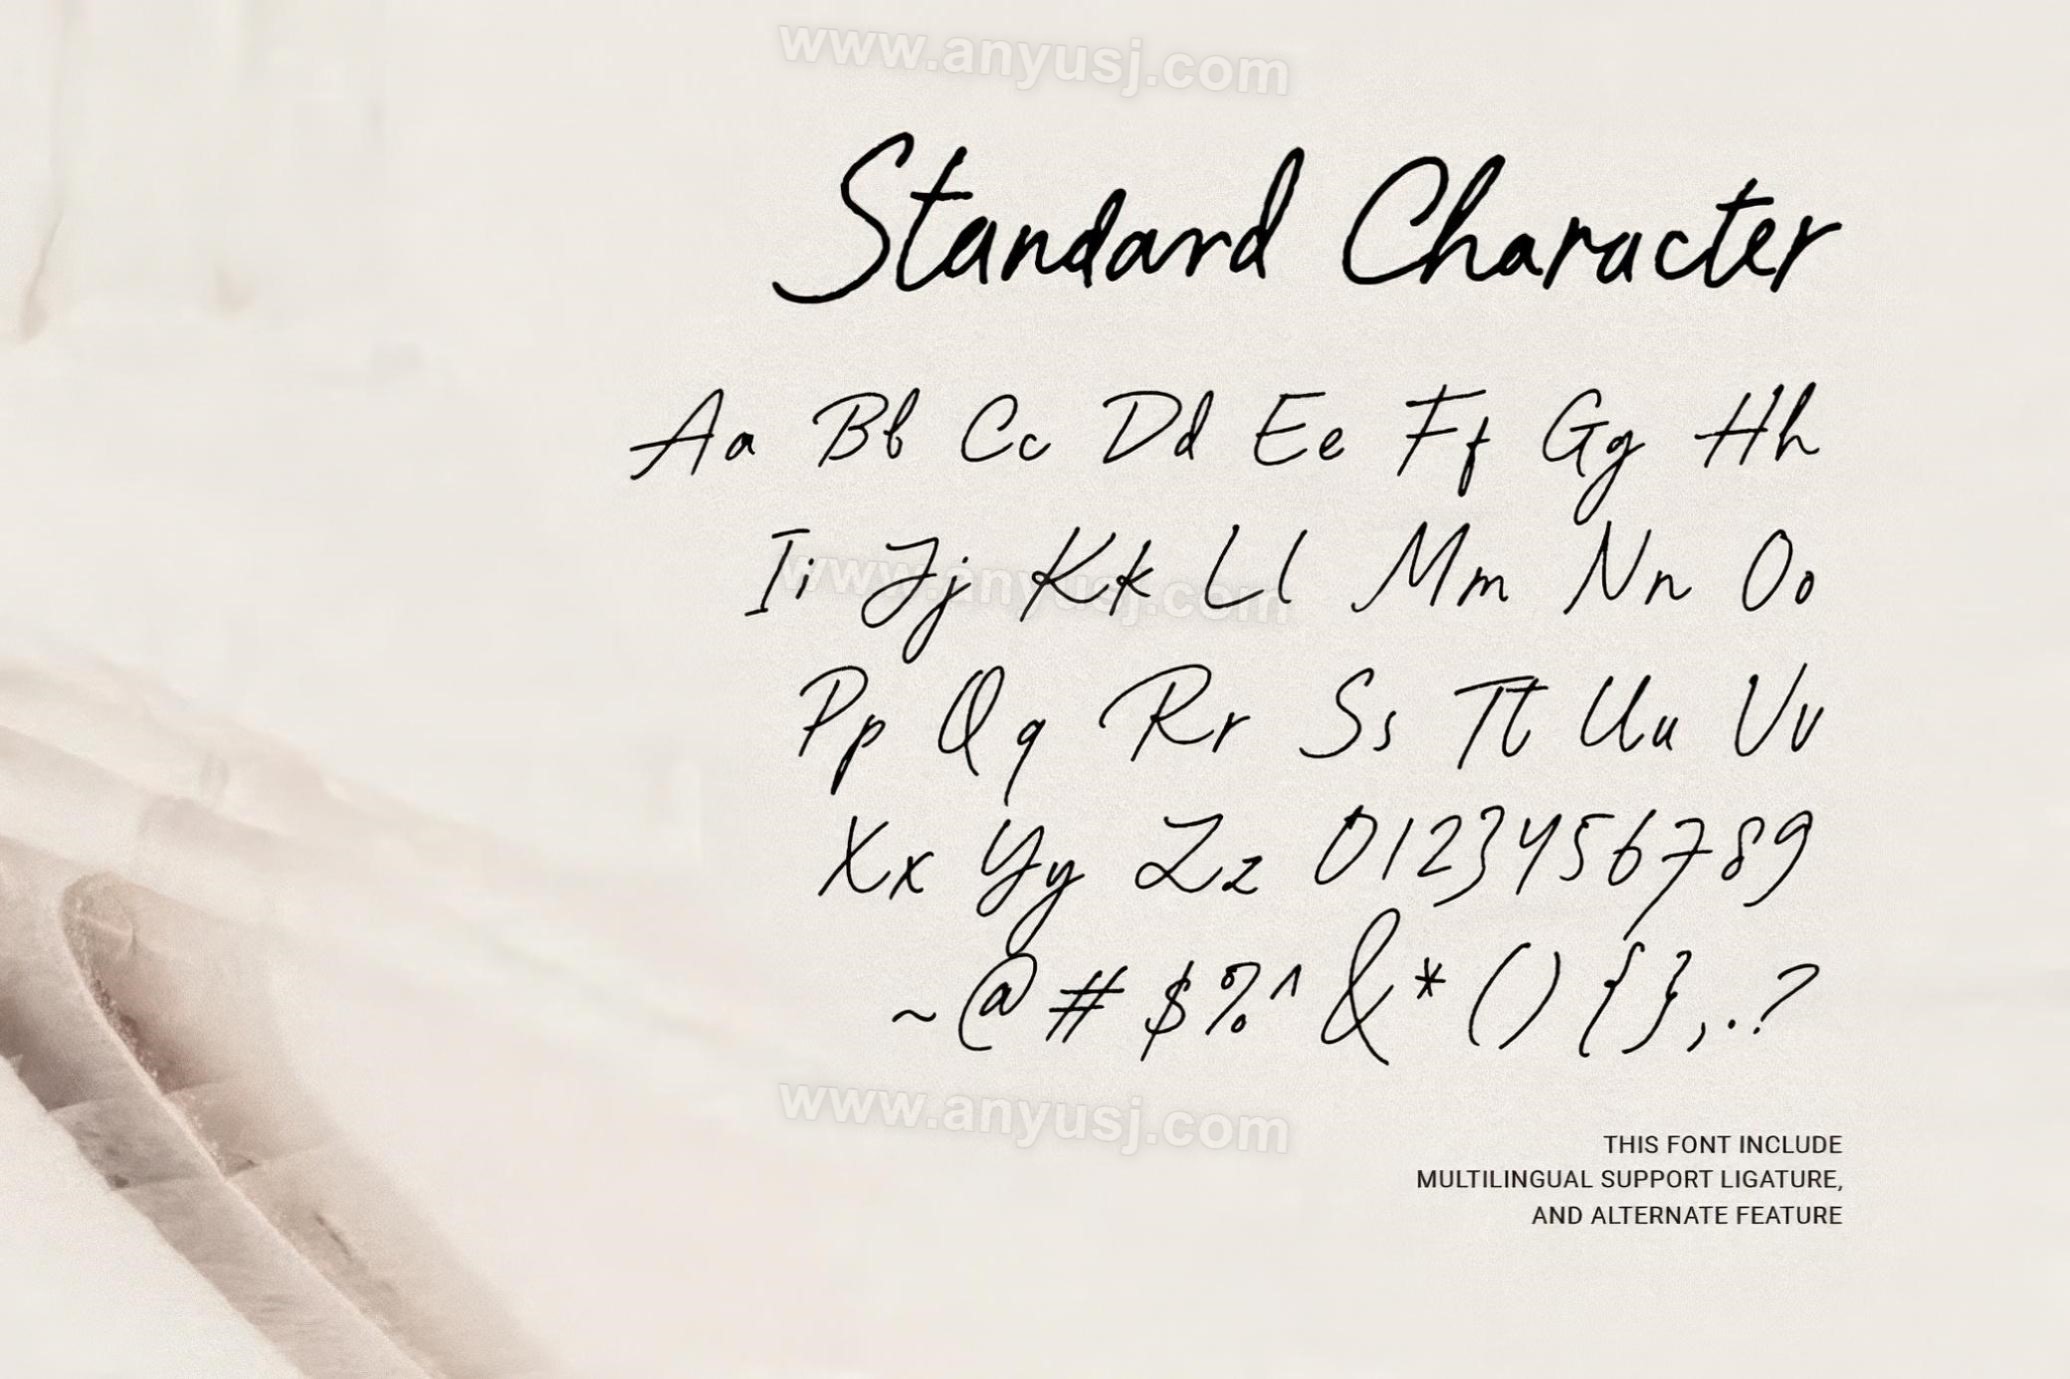 www.anyusj.com
Standard Character
Aa Bb Cc Dd Ee Ff Gg Hh
Ii Jj Kk Ll Mm Nn Oo
www.anyusj.com
Pp Qq Rr Ss Tt Uu Vv
Xx Yy Zz 0123456789
~@#$%^&*(){},.?
www.anyusj.com
THIS FONT INCLUDE
MULTILINGUAL SUPPORT LIGATURE,
AND ALTERNATE FEATURE